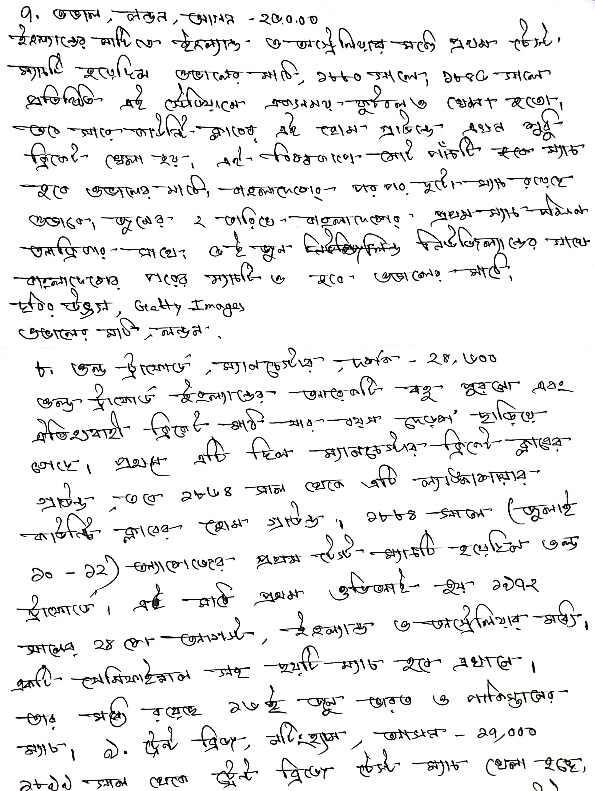 ৭. ওভাল, লন্ডন, আসন - ২৫,৫০০
ইংল্যান্ডের মাটিতে ইংল্যান্ড ও অস্ট্রেলিয়ার মধ্যে প্রথম টেস্ট
ম্যাচটি হয়েছিল ওভালের মাঠে, ১৮৮০ সালে, ১৮৪৫ সালে
প্রতিষ্ঠিত এই স্টেডিয়ামে একসময় ফুটবলও খেলা হতো,
তবে সারে কাউন্টি ক্লাবের এই হোম গ্রাউন্ডে এখন শুধু
ক্রিকেট খেলা হয়, এবং বিশ্বকাপে মোট পাঁচটি ম্যাচ
হবে ওভালের মাঠে, বাংলাদেশের পরপর দুটো ম্যাচ রয়েছে
ওভালে, জুনের ২ তারিখে বাংলাদেশের প্রথম ম্যাচ দক্ষিণ
আফ্রিকার সাথে, ৫ই জুন নিউজিল্যান্ডের সাথে
বাংলাদেশের পরের ম্যাচটি ও হবে ওভালের মাঠে,
ছবির উৎস, Getty Images
ওভালের মাঠ, লন্ডন,
৮. ওল্ড ট্রাফোর্ড, ম্যানচেস্টার, দর্শক - ২৪,৬০০
ওল্ড ট্রাফোর্ড ইংল্যান্ডের আরেকটি বহু পুরনো এবং
ঐতিহ্যবাহী ক্রিকেট মাঠ যার বয়স দেড়শ ছাড়িয়ে
গেছে। প্রথমে এটি ছিল ম্যানচেস্টার ক্রিকেট ক্লাবের
গ্রাউন্ড, তবে ১৮৬৪ সাল থেকে এটি ল্যাঙ্কাশায়ার
কাউন্টি ক্লাবের হোম গ্রাউন্ড। ১৮৮৪ সালে (জুলাই
১০ - ১২) অ্যাশেজের প্রথম টেস্ট ম্যাচটি হয়েছিল ওল্ড
ট্রাফোর্ডে। এই মাঠে প্রথম ওডিআই হয় ১৯৭২
সালের ২৪ শে আগস্ট, ইংল্যান্ড ও অস্ট্রেলিয়ার মধ্যে,
একটি সেমিফাইনাল সহ ছয়টি ম্যাচ হবে এখানে,
তার মধ্যে রয়েছে ১৬ই জুন ভারত ও পাকিস্তানের
ম্যাচ, ৯. ট্রেন্ট ব্রিজ, নটিংহাম, আসন - ১৭,০০০
১৮৯৯ সাল থেকে ট্রেন্ট ব্রিজে টেস্ট ম্যাচ খেলা হচ্ছে,